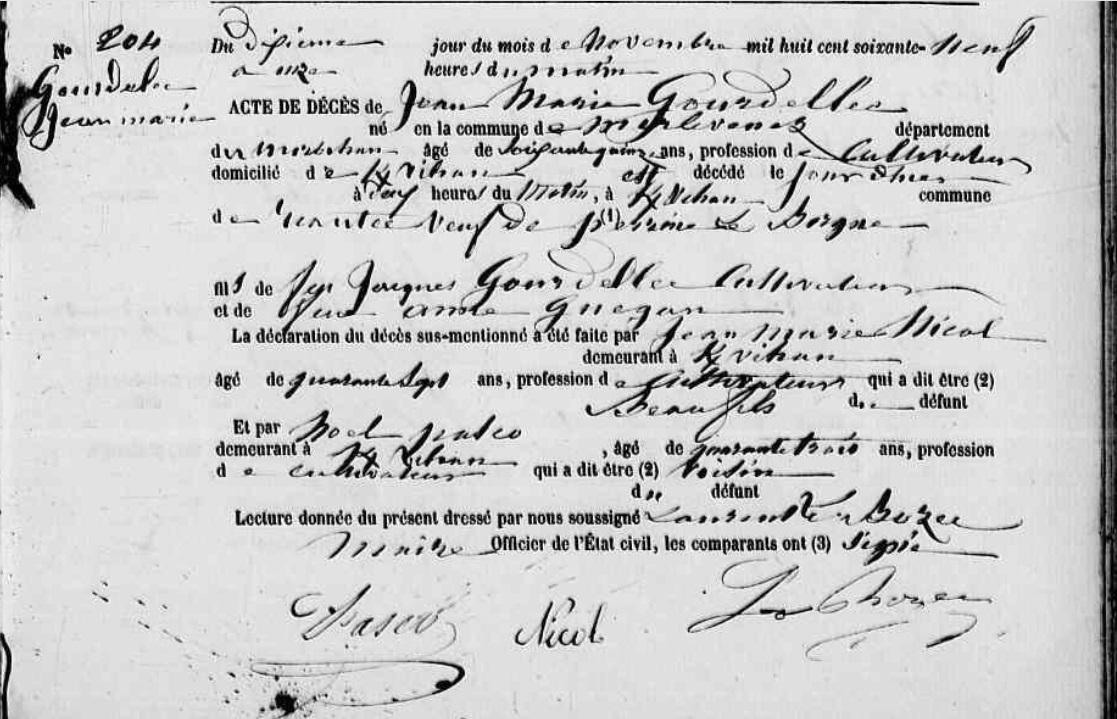 N° 204
Gourdelec
Jean marie
Du dixieme jour du mois de Novembre mil huit cent soixante-Neuf
a onze heures du matin
ACTE DE DÉCÈS de Jean Marie Gourdellec
né en la commune de Merlevenez département
du Morbihan âgé de soixante quinze ans, profession de Cultivateur
domicilié de Kvihan est décédé le jour d'hier
à heures du Matin, à KVihan commune
de veuf de (1) Perrine Le Borgne
fils de feu Jacques Gourdellec Cultivateur
et de feue anne Guegan
La déclaration du décès sus-mentionné a été faite par Jean Marie Nicol
demeurant à Kvihan
âgé de quarante Sept ans, profession de Cultivateur qui a dit être (2)
Beau fils du défunt
Et par Noel pasco
demeurant à KVihan , âgé de quarante trois ans, profession
de cultivateur qui a dit être (2) Voisin
du défunt
Lecture donnée du présent dressé par nous soussigné
Maire Officier de l'État civil, les comparants ont (3) signé
Pasco Nicol